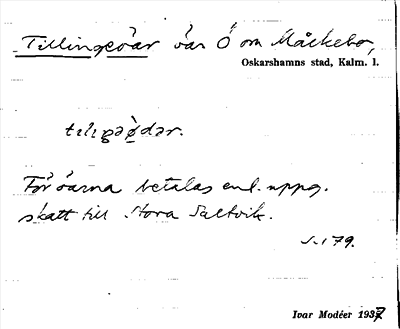 Tillingeöar öar Ö om Måckebo,
Oskarshamns stad, Kalm. l.
För öarna betalas enl. uppg.
skatt till Norra Saltvik.
S. 179.
Ivar Modéer 1937